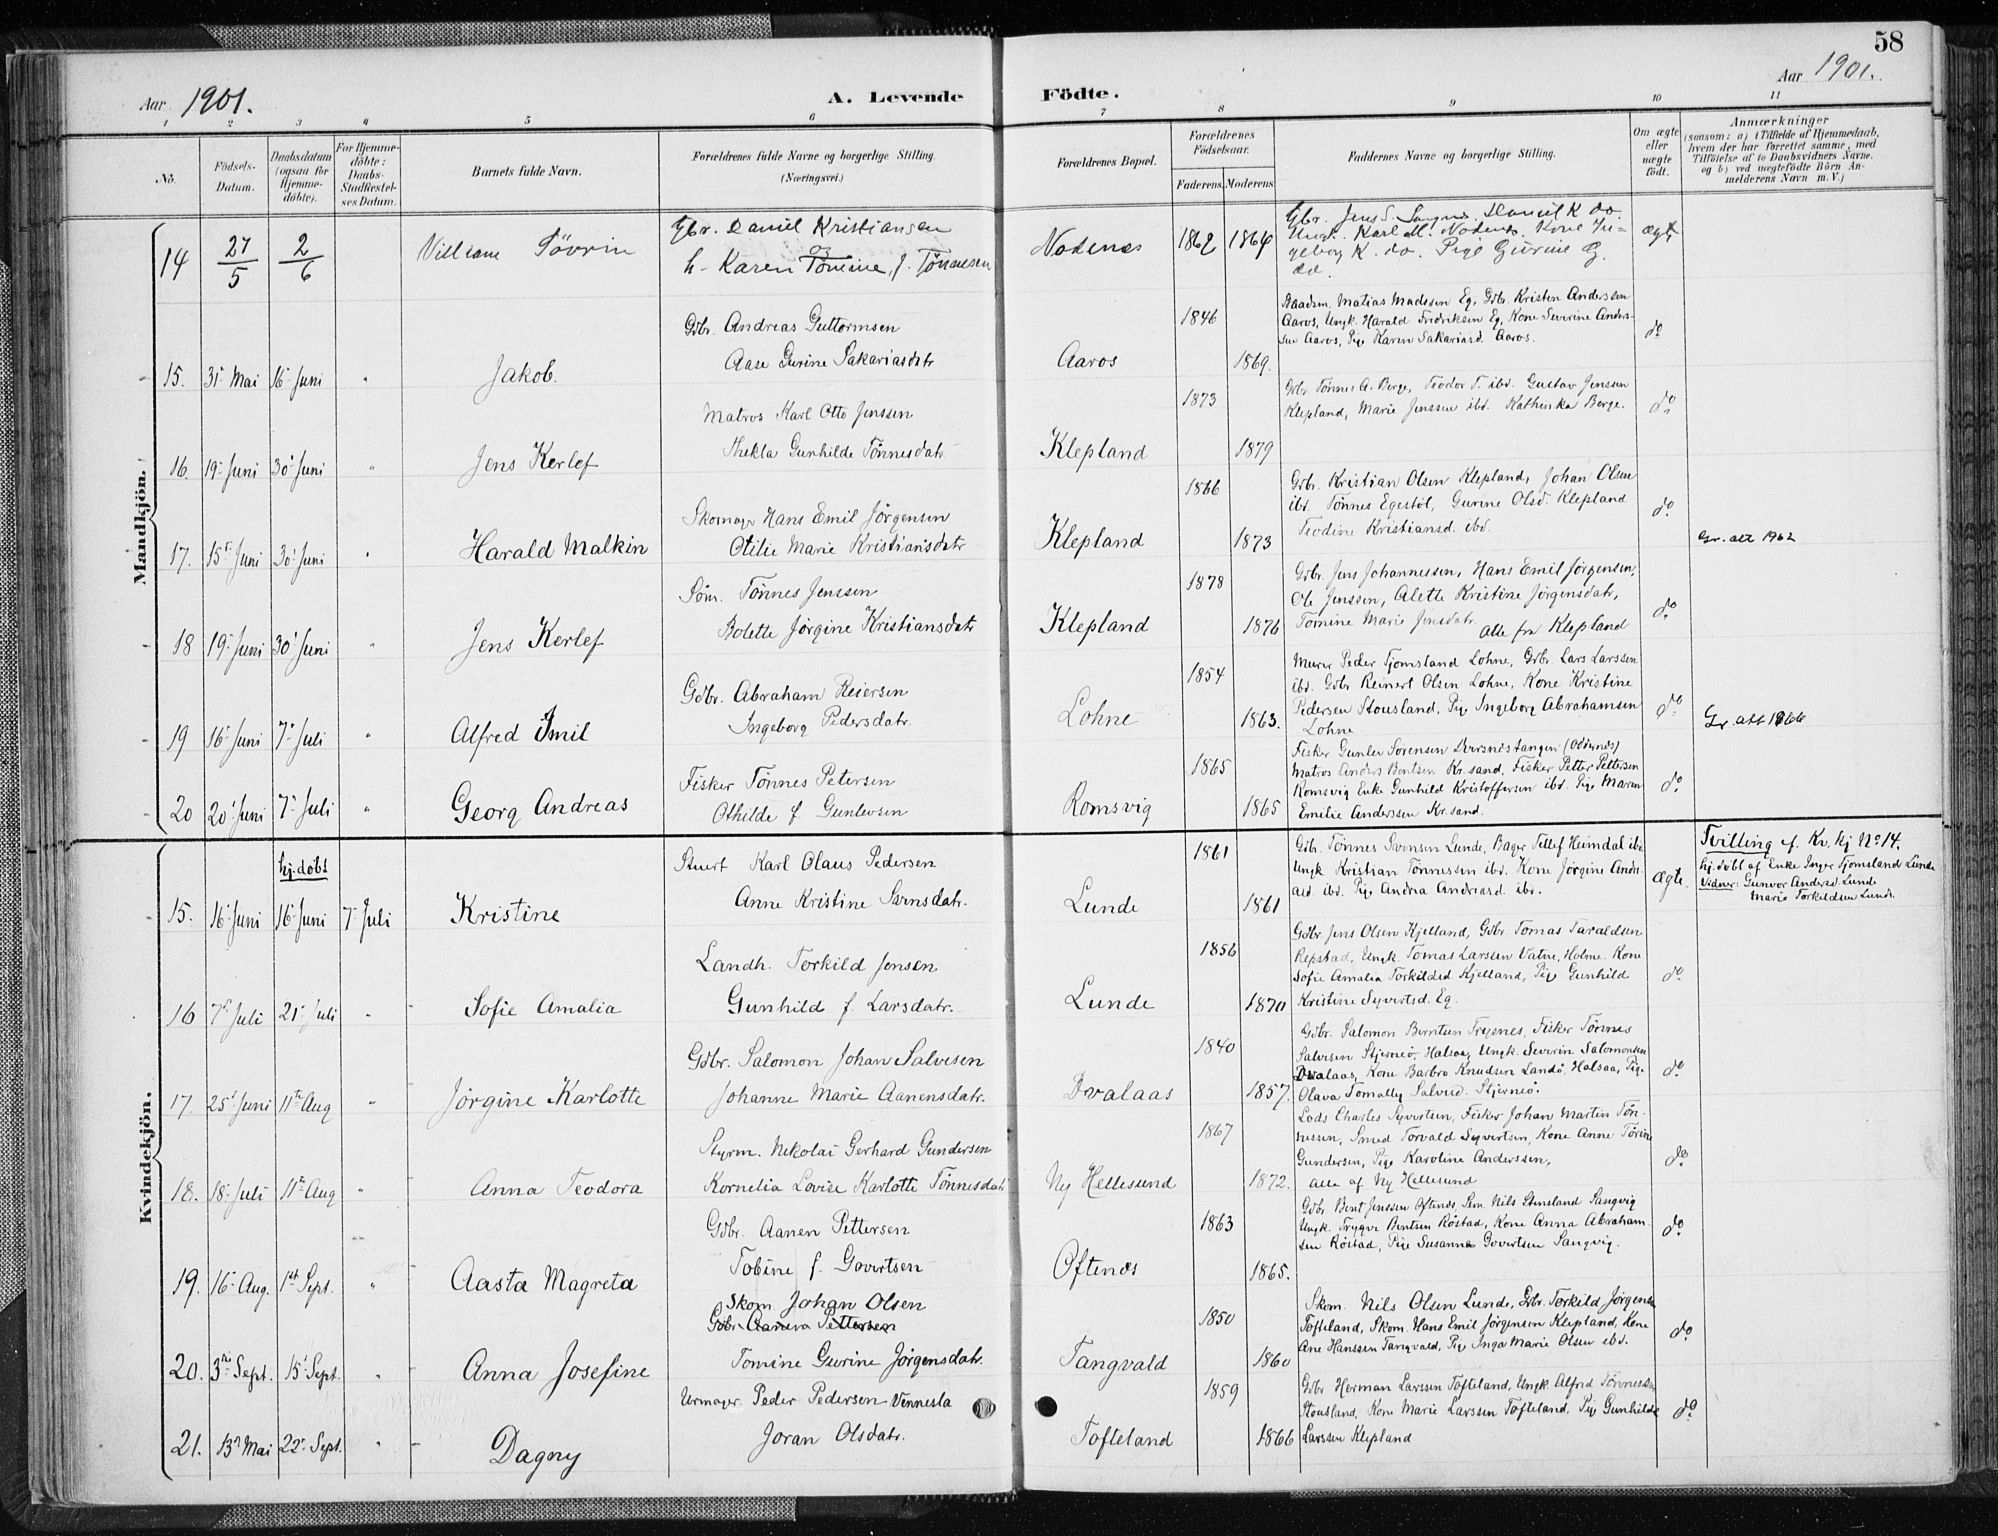 58
Aar 1901.
A. Levende Födte.
Aar 1901.
1 2 3 4 5 6 7 8 9 10 11
No.
Födsels-Datum.
Daabsdatum (ogsaa for Hjemme-döbte).
For Hjemme-döbte: Daabs-Stadfæstel-ses Datum.
Barnets fulde Navn.
Forældrenes fulde Navne og borgerlige Stilling.
(Næringsvei.)
Forældrenes Bopæl.
Forældrenes Födselsaar.
Faderens. Moderens.
Faddernes Navne og borgerlige Stilling.
Om ægte eller uægte födt.
Anmærkninger
(saasom: a) i Tilfælde af Hjemmedaab,
hvem der har forrettet samme, med
Tilföielse af to Daabsvidners Navne,
og b) ved uægtefödte Börn An-
melderens Navn m. V.)
Mandkjön.
14 27/5 2/6 Villiam Tövrin
Gbr. Daniel Kristiansen
og
h- Karen Tomine, f. Tønnesen
Nodenes 1862 1864
Gbr. Jens S. Daniel K do.
Ungk. Karl M. Nodenes. Kone In-
geborg K. do. Pige Gurine G.
do.
ægte
15. 31 Mai 16 Juni " Jakob.
Gdbr. Andreas Guttormsen
Aase Gurine Sakariasdatr
Aaros 1846 1869.
Baadsm. Matias Madssen Eg, Gdbr. Kristen Anderssen
Aaros, Ungk. Harald Fredriksen Eg, Kone Severine Anders-
sen Aaros, Pige Karen Sakariasd. Aaros.
do
16. 19 Juni 30 Juni " Jens Kerlef
Matros Karl Otto Jenssen
Thekla Gunhilde Tönnesdatr
Klepland 1873 1879
Gdbr Tönnes A. Berge, Teodor T. ibd. Gustav Jenssen
Klepland, Marie Jenssen ibd. Kathinka Berge.
do.
17. 15 Juni 30 Juni " Harald Malkin
Skomager Hans Emil Jörgensen
Otilie Marie Kristiansdatr
Klepland 1866 1873
Gdbr. Kristian Olsen Klepland, Johan Olsen
ibd. Tönnes Egestöl, Gurine Olsd. Klepland
Teodine Kristiansd. ibd.
do
Gr. att 1962
18 19 Juni 30 Juni " Jens Kerlef
Söm. Tönnes Jenssen
Bolette Jörgine Kristiansdatr
Klepland 1878 1876
Gdbr. Jens Johannessen, Hans Emil Jörgensen,
Ole Jenssen, Alette Kristine Jörgensdatr,
Tomine Marie Jensdatr. alle fra Klepland
do
19 16 Juni 7 Juli " Alfred Emil
Gdbr. Abraham Reiersen
Ingeborg Pedersdatr.
Lohne 1854 1863.
Murer Peder Tjomsland Lohne, Gdbr. Lars Larssen
ibd. Gdbr Reinert Olsen Lohne, Kone Kristine
Pedersen Stousland, Pige Ingeborg Abrahamsen
Lohne
do
Gr. att 1966
20 20 Juni 7 Juli " Georg Andreas
Fisker Tönnes Petersen
Othilde f. Gunlevsen
Romsvig 1865 1865
Fisker Gunlev Sorensen (Oddernes)
Matros Anders Bentsen Kr.sand, Fisker Petter Pettersen
Romsvig Enke Gunhild Kristoffersen ibd. Pige Maren
Emilie Anderssen Kr.sand.
do
Kvindekjön.
hj.döbt
15. 16 Juni 16 Juni 7 Juli Kristine
Stuert Karl Olaus Pedersen
Anne Kristine Svensdatr.
Lunde 1861 1861
Gdbr. Tönnes Svensen Lunde, Bager Tellef Heimdal ibd
Ungk Kristian Tönnessen ibd. Kone Jörgine Andre-
asd. ibd. Pige Andrea Andreasd. ibd.
ægte.
Tvilling af Kv. kj No 14.
hj.döbt af Enke Inger Tjomsland Lunde
Vidner: Gunvor Andersd. Lunde
Marie Torkildsen Lunde.
16 7 Juli 21 Juli " Sofie Amalia
Landh. Torkild Jensen
Gunhild f. Larsdatr.
Lunde 1856 1870
Gdbr Jens Olsen Kjelland, Gdbr. Tomas Taraldsen
Repstad, Ungk Tomas Larssen Vatne, Holme. Kone
Sofie Amalia Torkildsd Kjelland, Pige Gunhild
Kristine Syvertsd. Eg.
do
17. 25 Juni 11te Aug " Jörgine Karlotte
Gdbr. Salomon Johan Salvesen
Johanne Marie Aanensdatr.
Dvalaas 1840 1857.
Gdbr. Salomon Berntsen Trysnes, Fisker Tönnes
Salvesen Stjerneö, Halsaa, Ungk. Severin Salomonsen
Dvalaas, Kone Barbro Knudsen Landö, Halsaa, Pige
Olava Tomally Salvesd. Stjerneö.
do
18. 18 Juli 11te Aug " Anna Teodora
Styrm. Nikolai Gerhard Gundersen
Kornelia Lovise Karlotte Tönnesdatr
Ny Hellesund 1867 1872.
Lods Charles Syvertsen, Fisker Johan Martin Tön-
nessen, Smed Torvald Syvertsen, Kone Anne Törine
Gundersen, Pige Karoline Anderssen,
alle af Ny Hellesund
do
19. 16 Aug. 1st Sept. " Aasta Magreta
Gdbr. Aanen Pettersen
Tobine f. Govertsen
Oftenes 1863 1865.
Gdbr Bent Jenssen Oftenes, Söm. Nils Stensland Sangvig
Ungk. Trygve Bentsen Röstad, Kone Anna Abraham-
sen Röstad, Pige Susanna Govertsen Sangvig.
do
20. 3die Sept. 15 Sept. " Anna Josefine
Skom. Johan Olsen
Gdbr. Aanen Pettersen
Tomine Gurine Jörgensdatr.
Tangvald 1850 1860
Skom. Nils Olsen Lunde, Gdbr. Torkild Jörgensen
Tofteland, Skom. Hans Emil Jörgensen Klepland, Kone
Ane Hanssen Tangvald, Pige Inga Marie Olsen ibd.
do
21. 13 Mai 22 Sept. " Dagny
Urmager. Peder Pedersen Vennesla
Joran Olsdatr.
Tofteland 1859 1866
Gdbr Herman Larssen Tofteland, Ungk Alfred Tönnessen
Stousland, Kone Marie Larssen Tofteland, Pige Gunhilde
Larssen Klepland
do